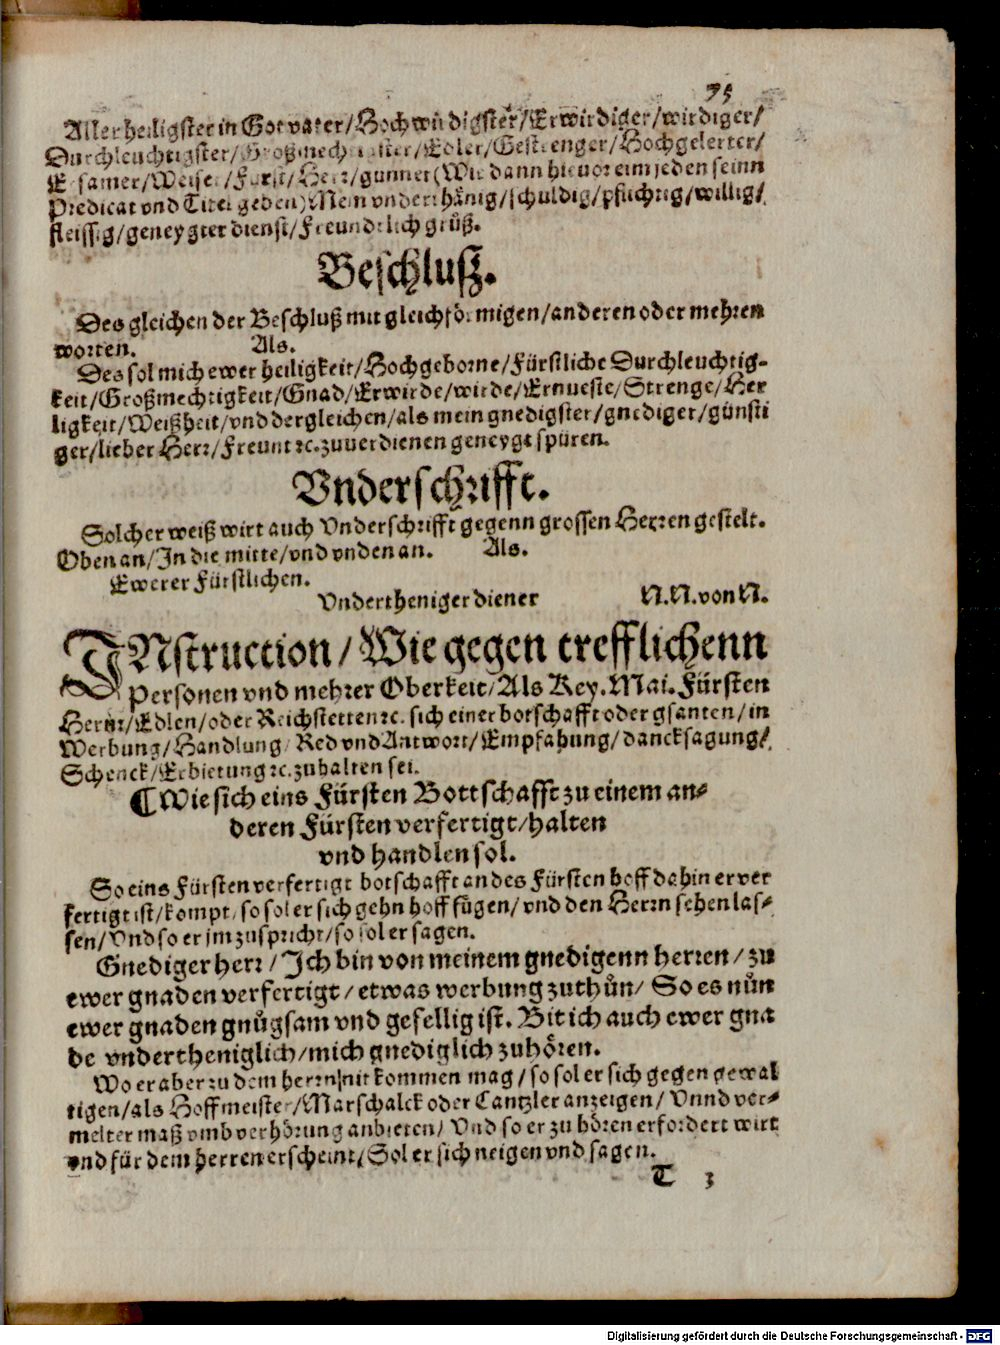 75
Allerheiligster in Got vater/Hochwirdigster/Erwirdiger/wirdiger/
Durchleuchtigster/Großmechtigster/Edler/Gestrenger/Hochgelerter/
Ersamer/Weiser/Fürst/Herr/gunner (Wie dann hieuor eim jeden seinn
Predicat vnd Titel geben) Mein vnderthänig/schuldig/pflichtig/willig/
fleissig/geneygter dienst/Freundtlich grůß.
Beschlusz.
Des gleichen der Beschluß mit gleichförmigen/anderen oder mehren
worten. Als.
Des sol mich ewer heiligkeit/Hochgeborne/Fürstliche Durchleuchtig-
keit/Großmechtigkeit/Gnad/Erwirde/wirde/Ernueste/Strenge/Her
ligkeit/Weißheit/vnd dergleichen/als mein gnedigster/gnediger/günsti
ger/lieber Herr/Freunt ꝛc. zuuerdienen geneygt spüren.
Vnderschrifft.
Solcher weiß wirt auch Vnderschrifft gegenn grossen Herren gestelt.
Oben an/In die mitte/vnd vnden an. Als.
Ewerer Fürstlichen.
Vndertheniger diener N.N. von N.
INstruction/Wie gegen trefflichenn
Personen vnd mehrer Oberkeit/Als Key. Mai. Fürsten
Herrn/Edlen/oder Reichstetten ꝛc. sich einer botschafft oder gsanten/in
Werbung/Handlung/Red vnd Antwort/Empfahung/dancksagung/
Schenck/Erbietung ꝛc. zuhalten sei.
¶Wie sich eins Fürsten Bottschafft zu einem an-
deren Fürsten verfertigt/halten
vnd handlen sol.
So eins Fürsten verfertigt botschafft an des Fürsten hoff dahin er ver
fertigt ist/kompt/so sol er sich gehn hoff fügen/vnd den Herrn sehen las-
sen/Vnd so er jm zuspricht/so sol er sagen.
Gnediger herr/Ich bin von meinem gnedigenn herren/zu
ewer gnaden verfertigt/etwas werbung zuthůn/So es nůn
ewer gnaden gnůgsam vnd gefellig ist. Bit ich auch ewer gna
de vndertheniglich/mich gnediglich zuhören.
Wo er aber zu dem herrn nit kommen mag/so sol er sich gegen gewal
tigen/als Hoffmeister/Marschalck oder Cantzler anzeigen/Vnnd ver-
melter maß vmb verhörung anbieten/Vnd so er zu hören erfordert wirt
vnd für dem herren erscheint/Sol er sich neigen vnd sagen.
T 3
Digitalisierung gefördert durch die Deutsche Forschungsgemeinschaft - DFG